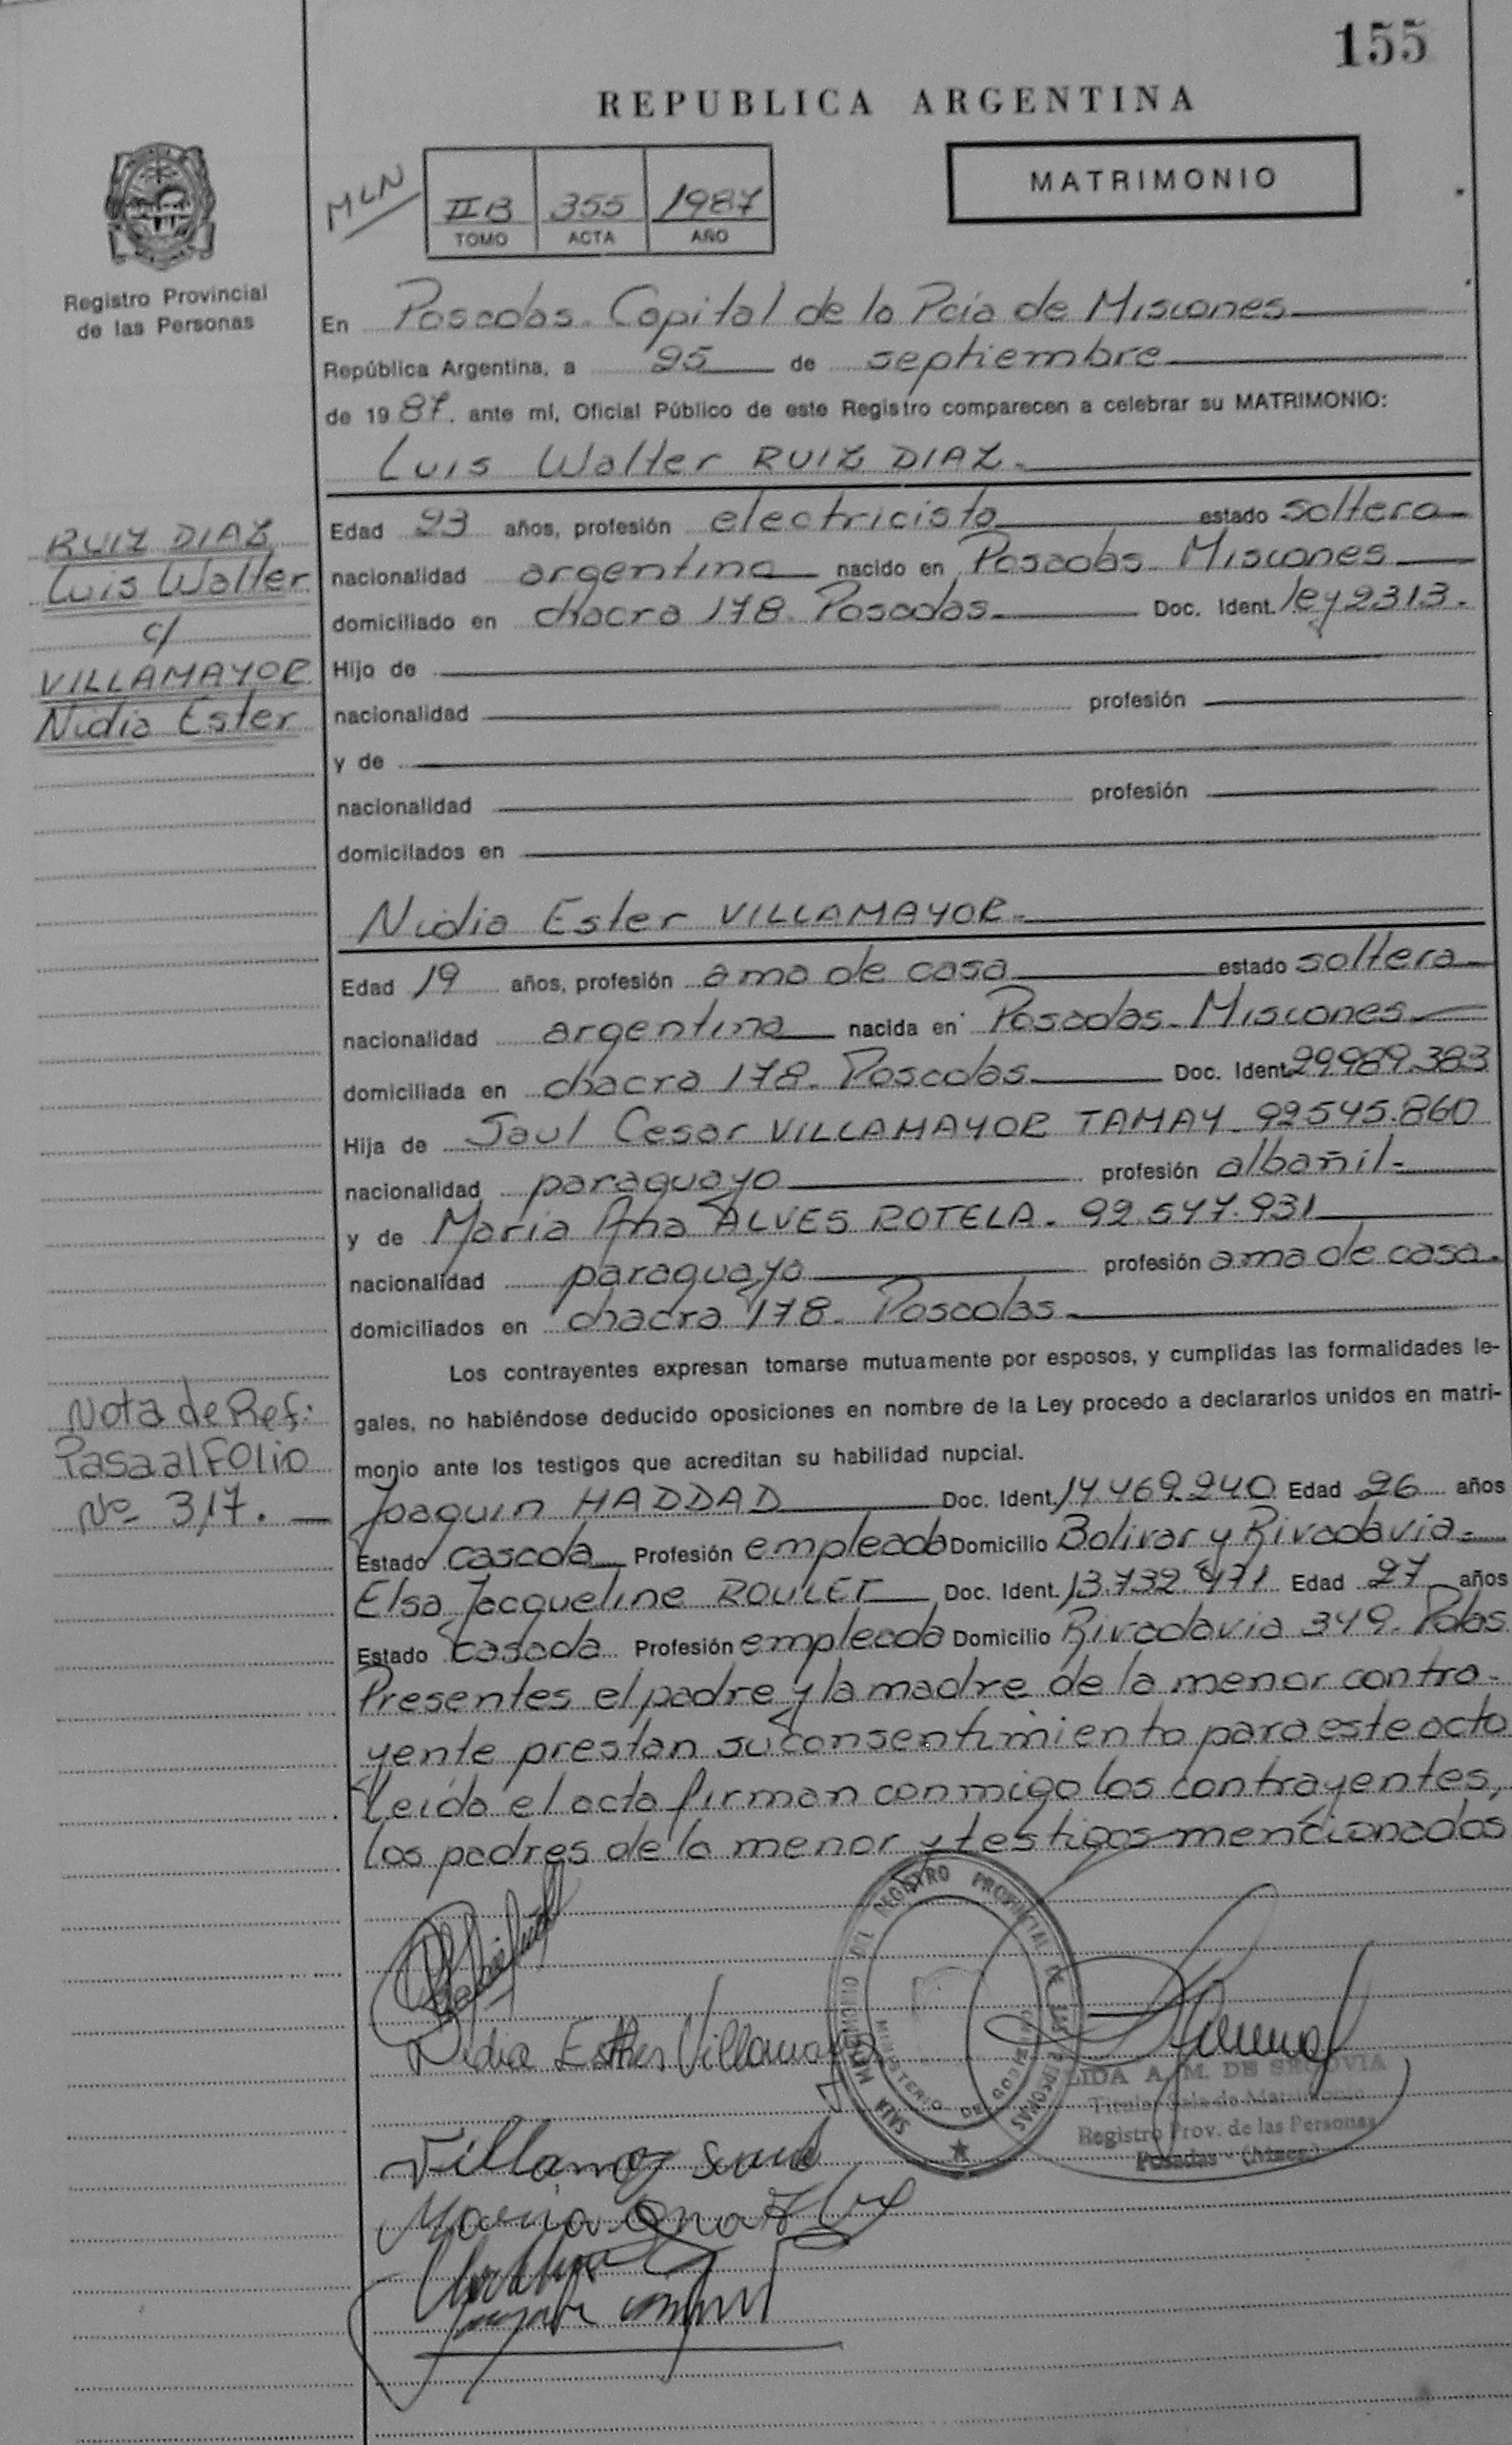 155
REPUBLICA ARGENTINA
MLN
IIB 355 1987
TOMO ACTA AÑO
MATRIMONIO
Registro Provincial
de las Personas
En Posadas. Capital de la Pcia de Misiones
República Argentina, a 25 de septiembre
de 1987. ante mí, Oficial Público de este Registro comparecen a celebrar su MATRIMONIO:
Luis Walter RUIZ DIAZ.
RUIZ DIAZ
Luis Walter
c/
VILLAMAYOR
Nidia Ester
Edad 23 años, profesión electricista estado soltero
nacionalidad argentino nacido en Posadas. Misiones
domiciliado en chacra 178. Posadas. Doc. Ident. ley 2313.
Hijo de
nacionalidad profesión
y de
nacionalidad profesión
domicilados en
Nidia Ester VILLAMAYOR.
Edad 19 años, profesión ama de casa estado soltera
nacionalidad argentina nacida en Posadas. Misiones
domiciliada en chacra 178. Posadas Doc. Ident. 29989.383
Hija de Saul Cesar VILLAMAYOR TAMAY. 92545.860
nacionalidad paraguayo profesión albañil.
y de Maria Ana ALVES ROTELA. 92.547.931
nacionalidad paraguaya profesión ama de casa.
domiciliados en chacra 178. Posadas
Los contrayentes expresan tomarse mutuamente por esposos, y cumplidas las formalidades le-
gales, no habiéndose deducido oposiciones en nombre de la Ley procedo a declararlos unidos en matri-
monio ante los testigos que acreditan su habilidad nupcial.
Nota de Ref:
Pasa al FOLIO
Nº 317.
Joaquin HADDAD Doc. Ident. 14.469.240 Edad 26 años
Estado casado Profesión empleado Domicilio Bolivar y Rivadavia.
Elsa Jacqueline ROULET Doc. Ident. 13.732.471 Edad 27 años
Estado casada Profesión empleada Domicilio Rivadavia 349. Pdas
Presentes el padre y la madre de la menor contra-
yente prestan su consentimiento para este acto
Leída el acta firman conmigo los contrayentes,
los padres de la menor y testigos mencionados
REGISTRO PROVINCIAL DE LAS PERSONAS
MINISTERIO DE GOBIERNO
Nidia Esther Villamayor
LIDA A. M. DE SEGOVIA
Titular Sala de Matrimonio
Registro Prov. de las Personas
Posadas - (Mnes)
Villamay Saul
Maria Ana Alve